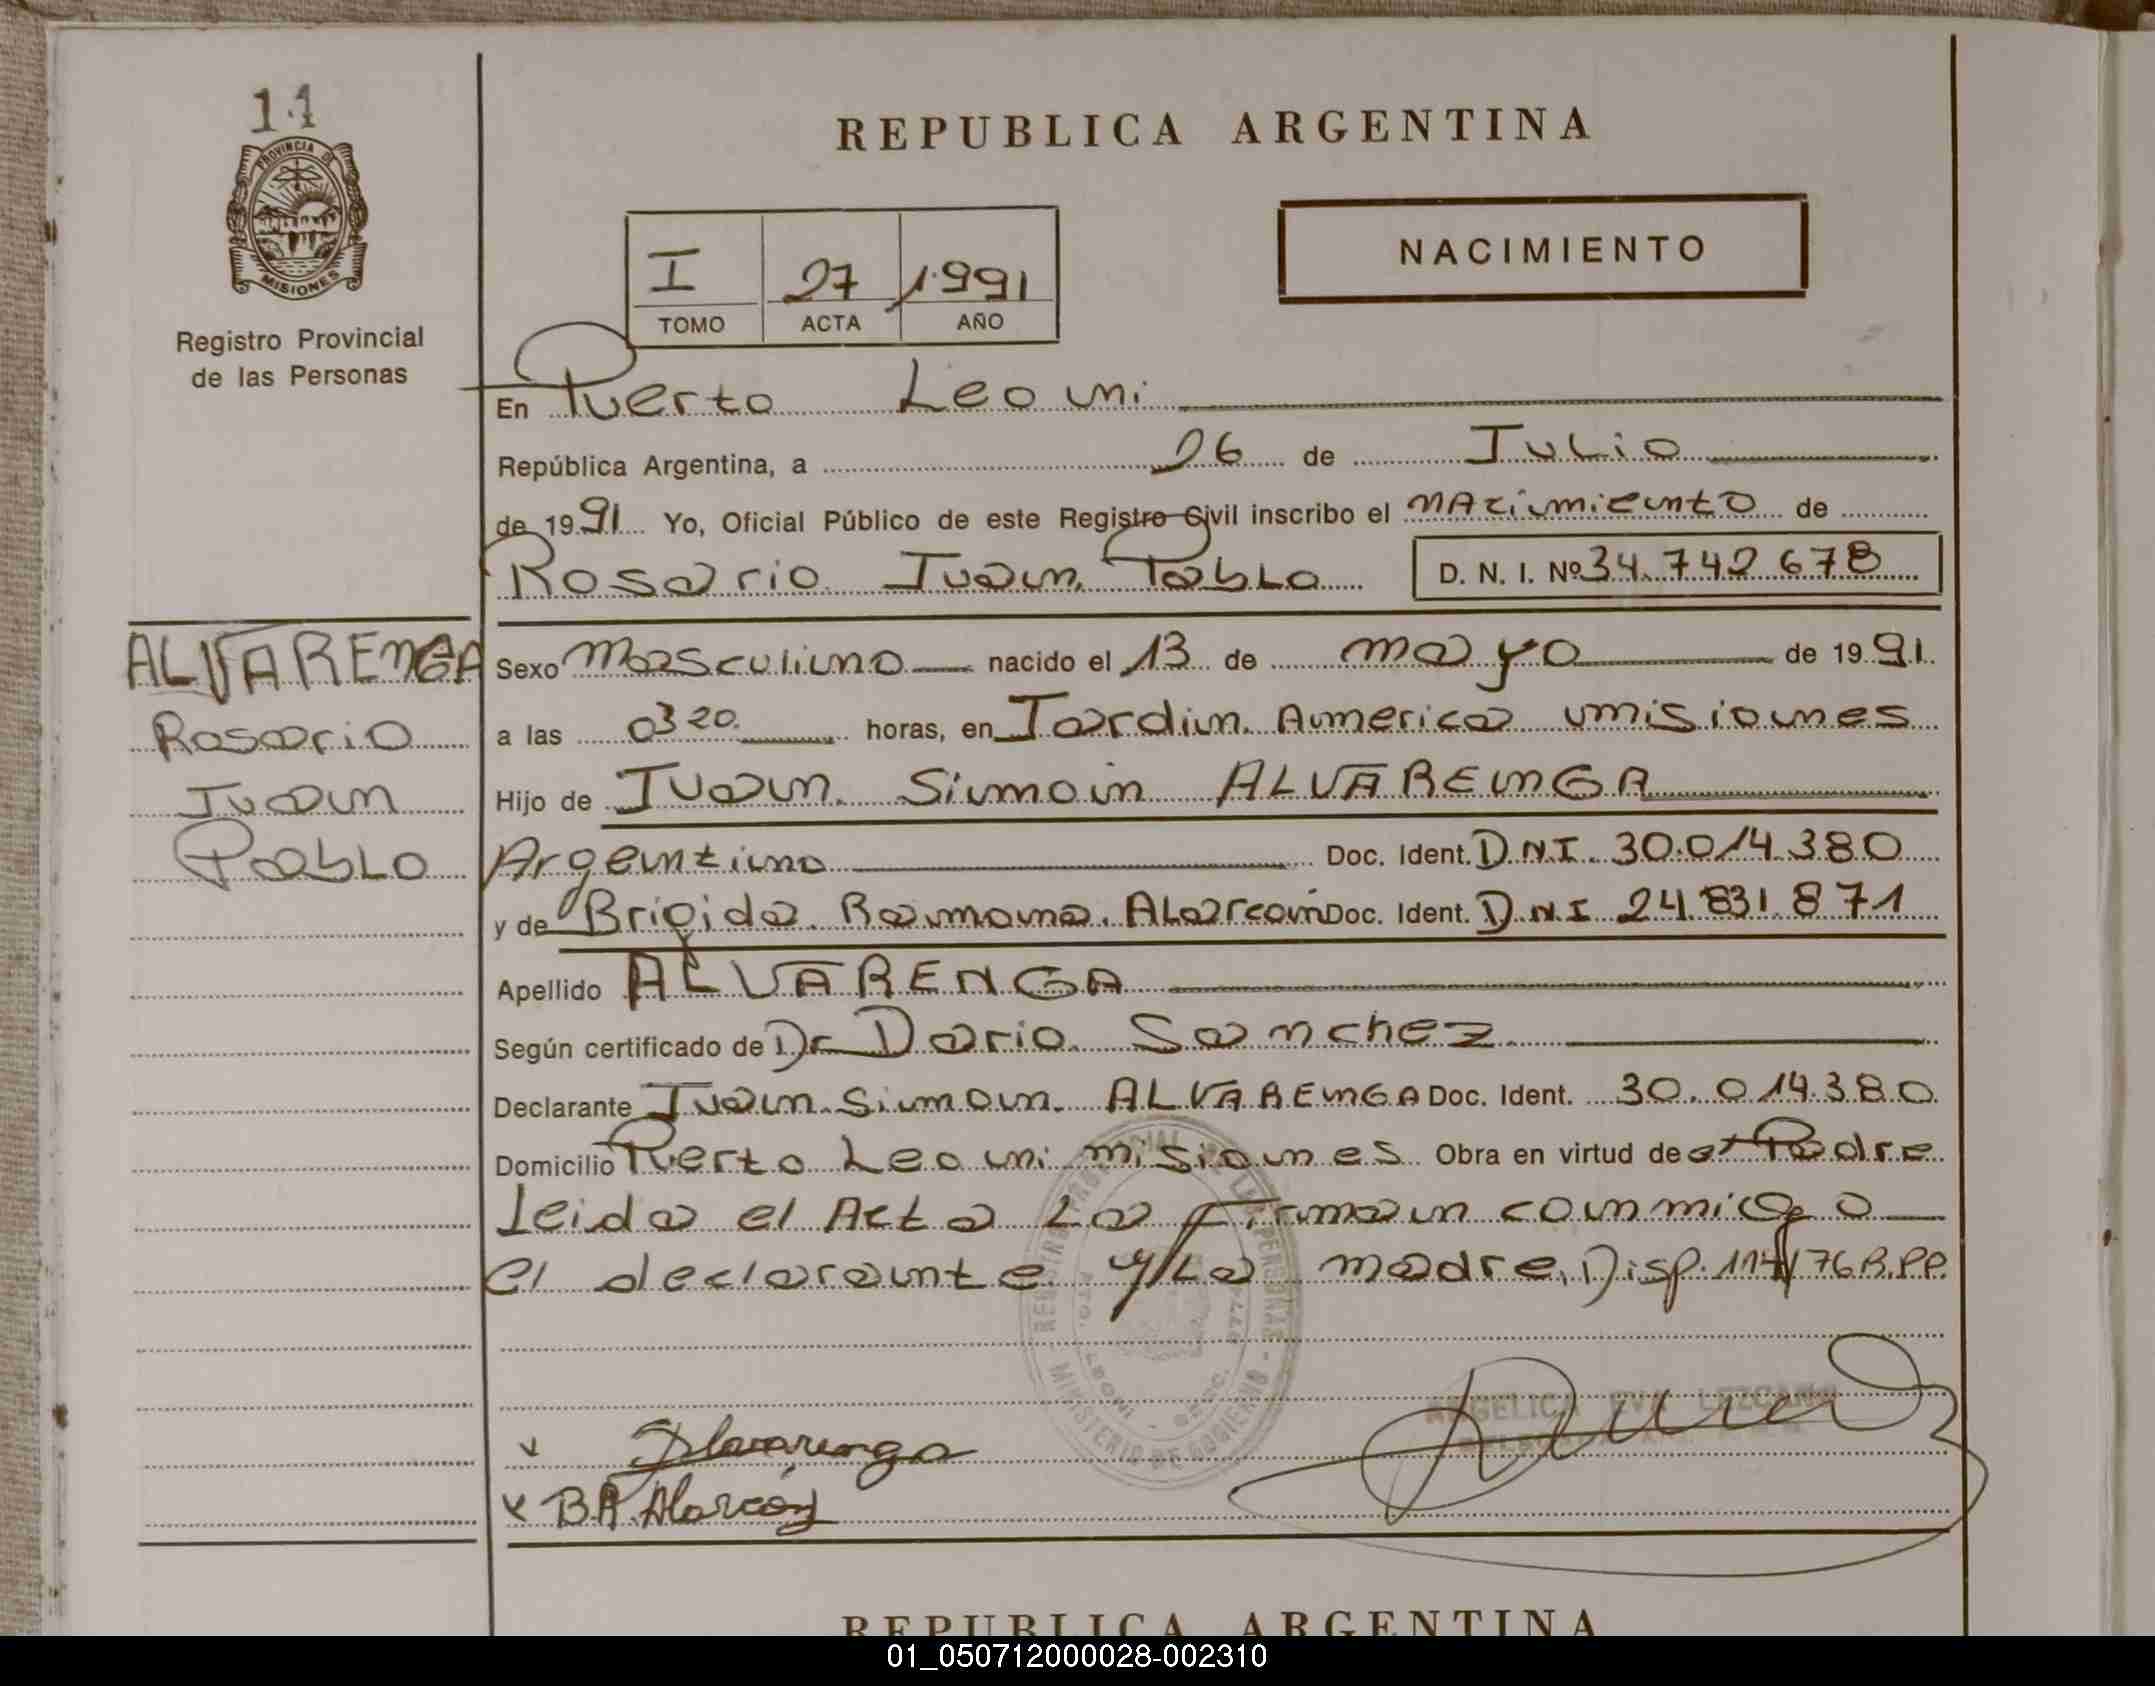 14
PROVINCIA DE
MISIONES
Registro Provincial
de las Personas
REPUBLICA ARGENTINA
NACIMIENTO
I 27 1991
TOMO ACTA AÑO
En Puerto Leoni
República Argentina, a 26 de Julio
de 1991 Yo, Oficial Público de este Registro Civil inscribo el nacimiento de
Rosario Juan Pablo D. N. I. Nº 34.742.678
ALVARENGA
Rosario
Juan
Pablo
Sexo Masculino nacido el 13 de mayo de 1991
a las 0320 horas, en Jardin America misiones
Hijo de Juan Simon ALVARENGA
Argentino Doc. Ident. D.N.I. 30.014.380
y de Brigida Ramona Alarcon Doc. Ident. D.N.I 24.831.871
Apellido ALVARENGA
Según certificado de Dr Dario Sanchez
Declarante Juan Simon ALVARENGA Doc. Ident. 30.014.380
Domicilio Puerto Leoni misiones Obra en virtud de el Padre
Leida el Acta La Firman conmigo
el declarante y La madre, Disp. 114/76 R.P.P.
REGISTRO PROVINCIAL DE LAS PERSONAS
MINISTERIO DE GOBIERNO
PTO. LEONI
ANGELICA EVA LEZCANO
Alvarenga
B.R. Alarcón
REPUBLICA ARGENTINA
01_050712000028-002310